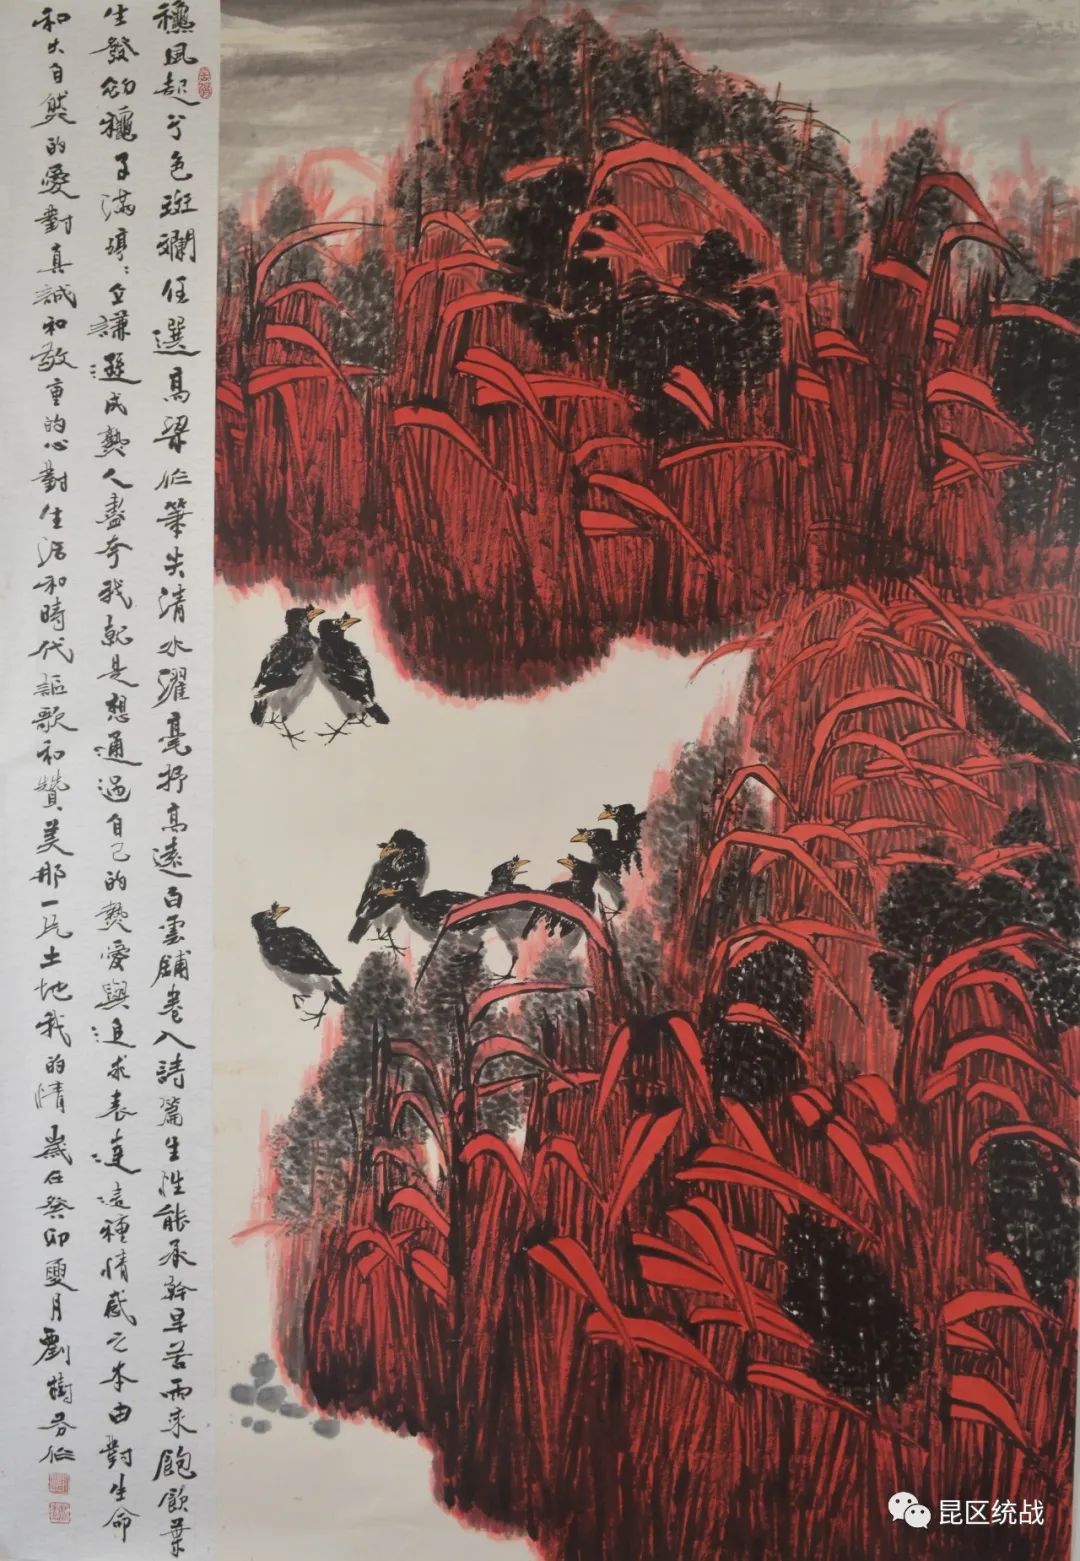 龝風起兮色斑斕任選高粱作筆尖清水濯毫抒高遠白雲鋪卷入詩篇生性能承幹旱苦雨來飽飲葉
生發子滿立謙遜成熟人盡夸我就是想通過自己的熱愛與追求表達這種情感之本由對生命
和大自然的愛對真誠和敬重的心對生活和時代謳歌和贊美那一片土地我的情歲在癸卯夏月劉樹芬作
昆区统战